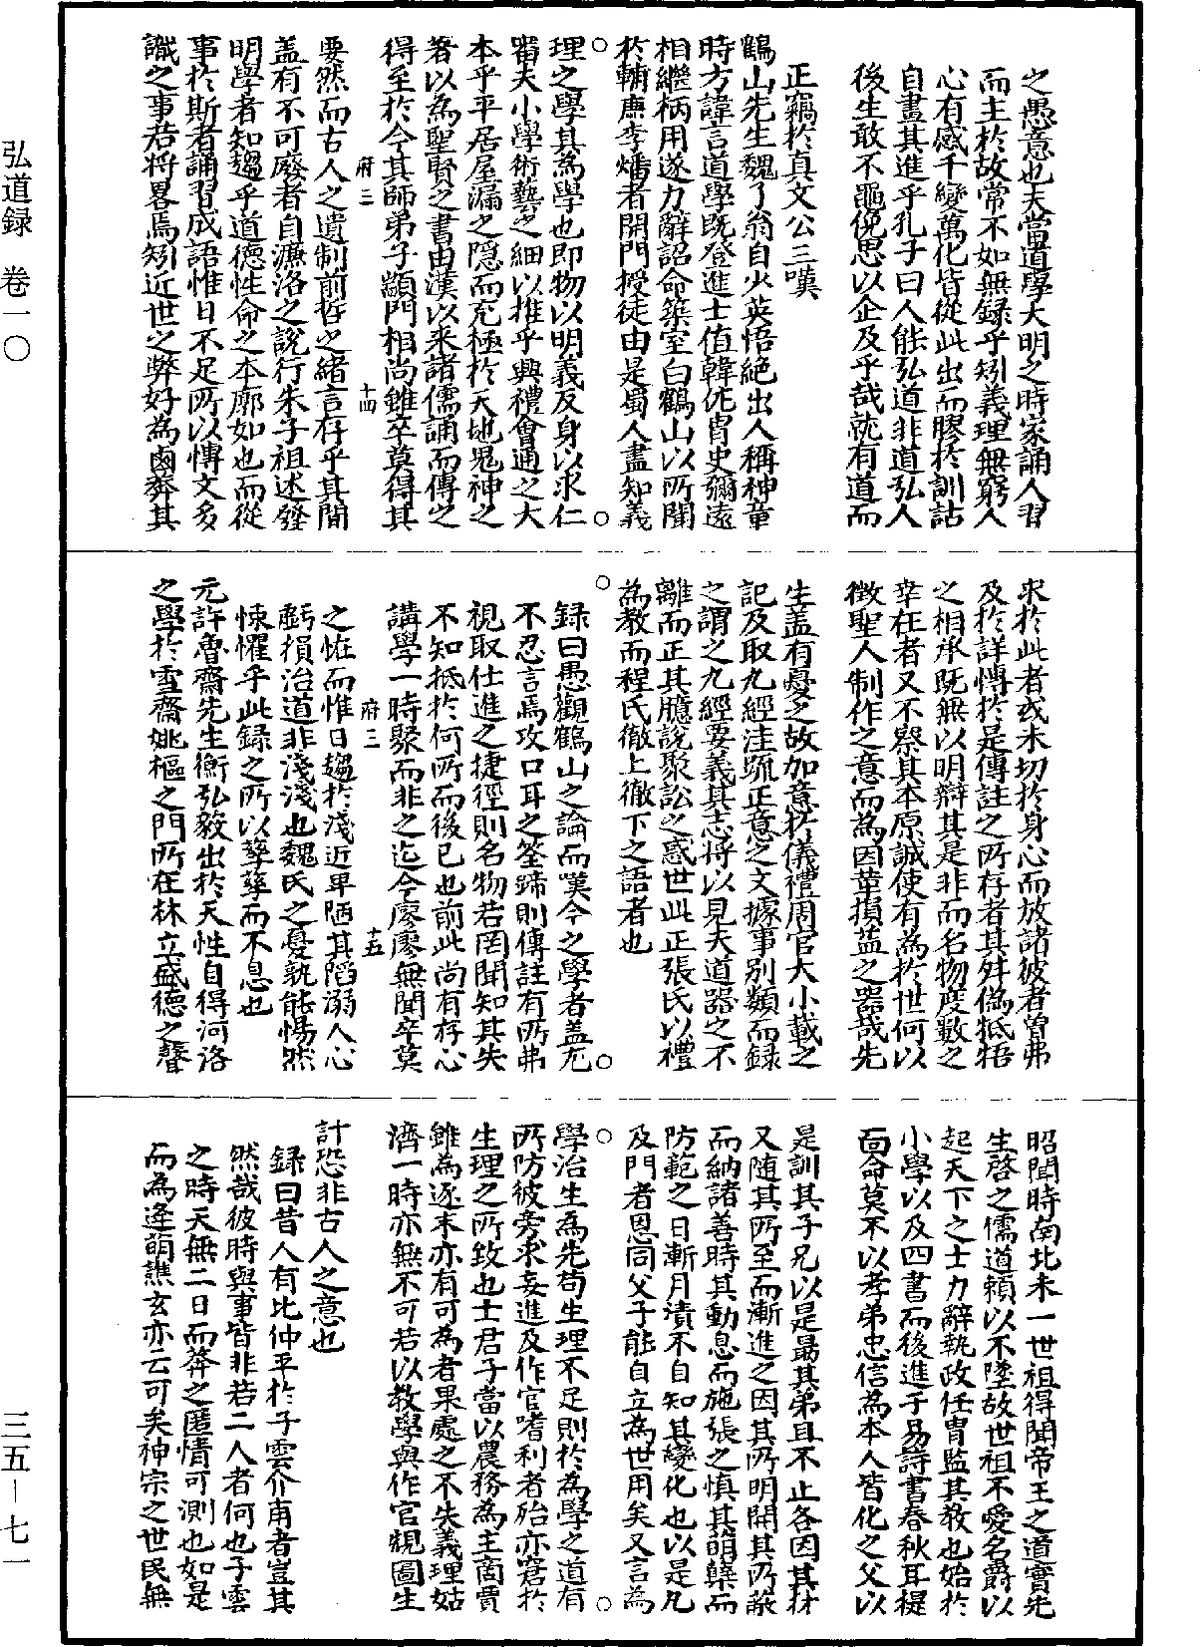 弘道録　卷一〇
三五－七一
之愚意也夫當道學大明之時家誦人習
而主於故常不如無録乎矧義理無窮人
心有感千變萬化皆從此出而膠於訓詁
自畫其進乎孔子曰人能弘道非道弘人
後生敢不黽俛思以企及乎哉就有道而
正竊於真文公三嘆
鶴山先生魏了翁自少英悟絶出人稱神童
時方諱言道學既登進士值韓侂胄史彌遠
相繼柄用遂力辭詔命築室白鶴山以所聞
於輔廣李燔者開門授徒由是蜀人盡知義
理之學其為學也即物以明義反身以求仁
審夫小學術藝之細以推乎興禮會通之大
本乎平居屋漏之隱而充極於天地鬼神之
著以為聖賢之書由漢以来諸儒誦而傳之
得至於今其師弟子顓門相尚雖卒莫得其
府三
十四
要然而古人之遺制前哲之緒言存乎其間
盖有不可廢者自濂洛之說行朱子祖述發
明學者知趨乎道德性命之本廓如也而從
事於斯者誦習成語惟日不足所以慱文多
識之事若将畧焉矧近世之弊好為鹵莽其
求於此者或未切於身心而放諸彼者曽弗
及於詳慱於是傳註之所存者其舛偽牴牾
之相承既無以明辯其是非而名物度數之
幸在者又不察其本原誠使有為於世何以
徵聖人制作之意而為因革損益之器哉先
生盖有憂之故加意於儀禮周官大小戴之
記及取九經注疏正意之文據事别類而録
之謂之九經要義其志将以見夫道器之不
離而正其臆說聚訟之惑世此正張氏以禮
為教而程氏徹上徹下之語者也
録曰愚觀鶴山之論而嘆今之學者盖尤
不忍言焉攻口耳之筌蹄則傳註有所弗
視取仕進之捷徑則名物若罔聞知其失
不知抵於何所而後已也前此尚有存心
講學一時聚而非之迄今廖廖無聞卒莫
府三
十五
之恠而惟日趨於淺近卑陋其陷溺人心
虧損治道非淺淺也魏氏之憂孰能惕然
悚懼乎此録之所以孳孳而不息也
元許魯齋先生衡弘毅出於天性自得河洛
之學於雪齋姚樞之門所在林立盛德之聲
昭聞時南北未一世祖得聞帝王之道實先
生啓之儒道頼以不墜故世祖不愛名爵以
起天下之士力辭執政任胄監其教也始於
小學以及四書而後進于易詩書春秋耳提
面命莫不以孝弟忠信為本人皆化之父以
是訓其子兄以是勗其弟且不止各因其材
又随其所至而漸進之因其所明開其所蔽
而納諸善時其動息而施張之慎其萌蘖而
防範之日漸月漬不自知其變化也以是凡
及門者恩同父子能自立為世用矣又言為
學治生為先苟生理不足則於為學之道有
所防彼旁求妄進及作官嗜利者殆亦窘於
生理之所致也士君子當以農務為主商賈
雖為逐末亦有可為者果處之不失義理姑
濟一時亦無不可若以教學與作官規圖生
計恐非古人之意也
録曰昔人有比仲平於子雲介甫者豈其
然哉彼時與事皆非若二人者何也子雲
之時天無二日而莽之匿情可測也如是
而為逄萌譙玄亦云可矣神宗之世民無